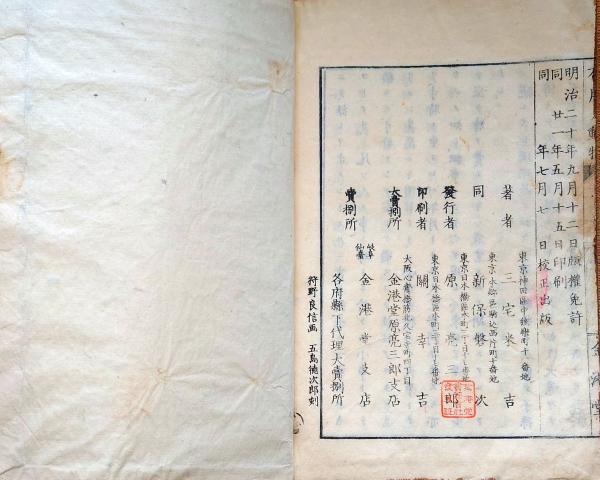 明治二十年九月十二日版權免許
同 廿一年五月十五日印刷
同 年七月七日校正出版
東京神田區中猿樂町十番地
著者 三宅米吉
東京本郷區駒込西片町十番地
同 新保磐次
東京日本橋區本町三丁目
發行者 原亮三郎
東京日本橋區本町三丁目
印刷者 關幸吉
大阪心齋橋筋北久寶寺町四丁目
大賣捌所 金港堂原亮三郎支店
岐阜
仙臺
賣捌所 金港堂支店
各府縣下代理大賣捌所
狩野良信画 五島德次郎刻
金港堂